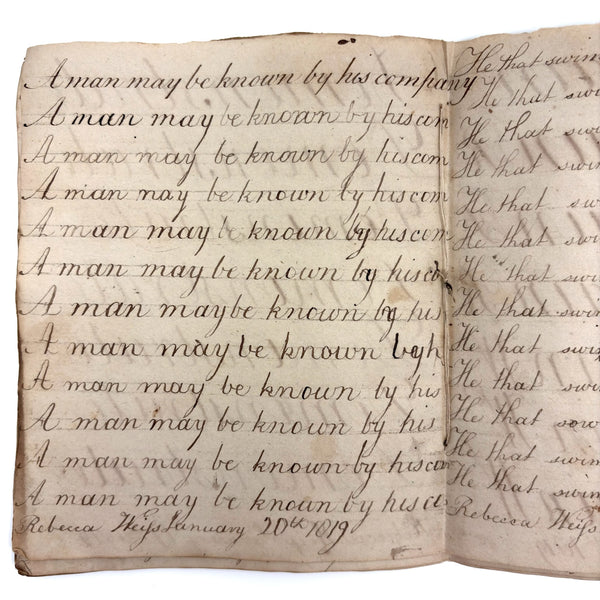 A man may be known by his company
A man may be known by his com
A man may be known by his com
A man nay be known by his com
A man may be known by his com
A man may be known by his co
A man may be known by his
A man may be known by h
A man may be known by his
A man may be known by his
A man may be known by his com
A man may be known by his c
Rebecca Weiss January 20th 1819
He that swim
He that swi
He that swi
He that swi
He that swi
He that swi
He that swin
He that swin
He that swin
He that swi
He that sow
He that swi
He that swim
Rebecca Weiss